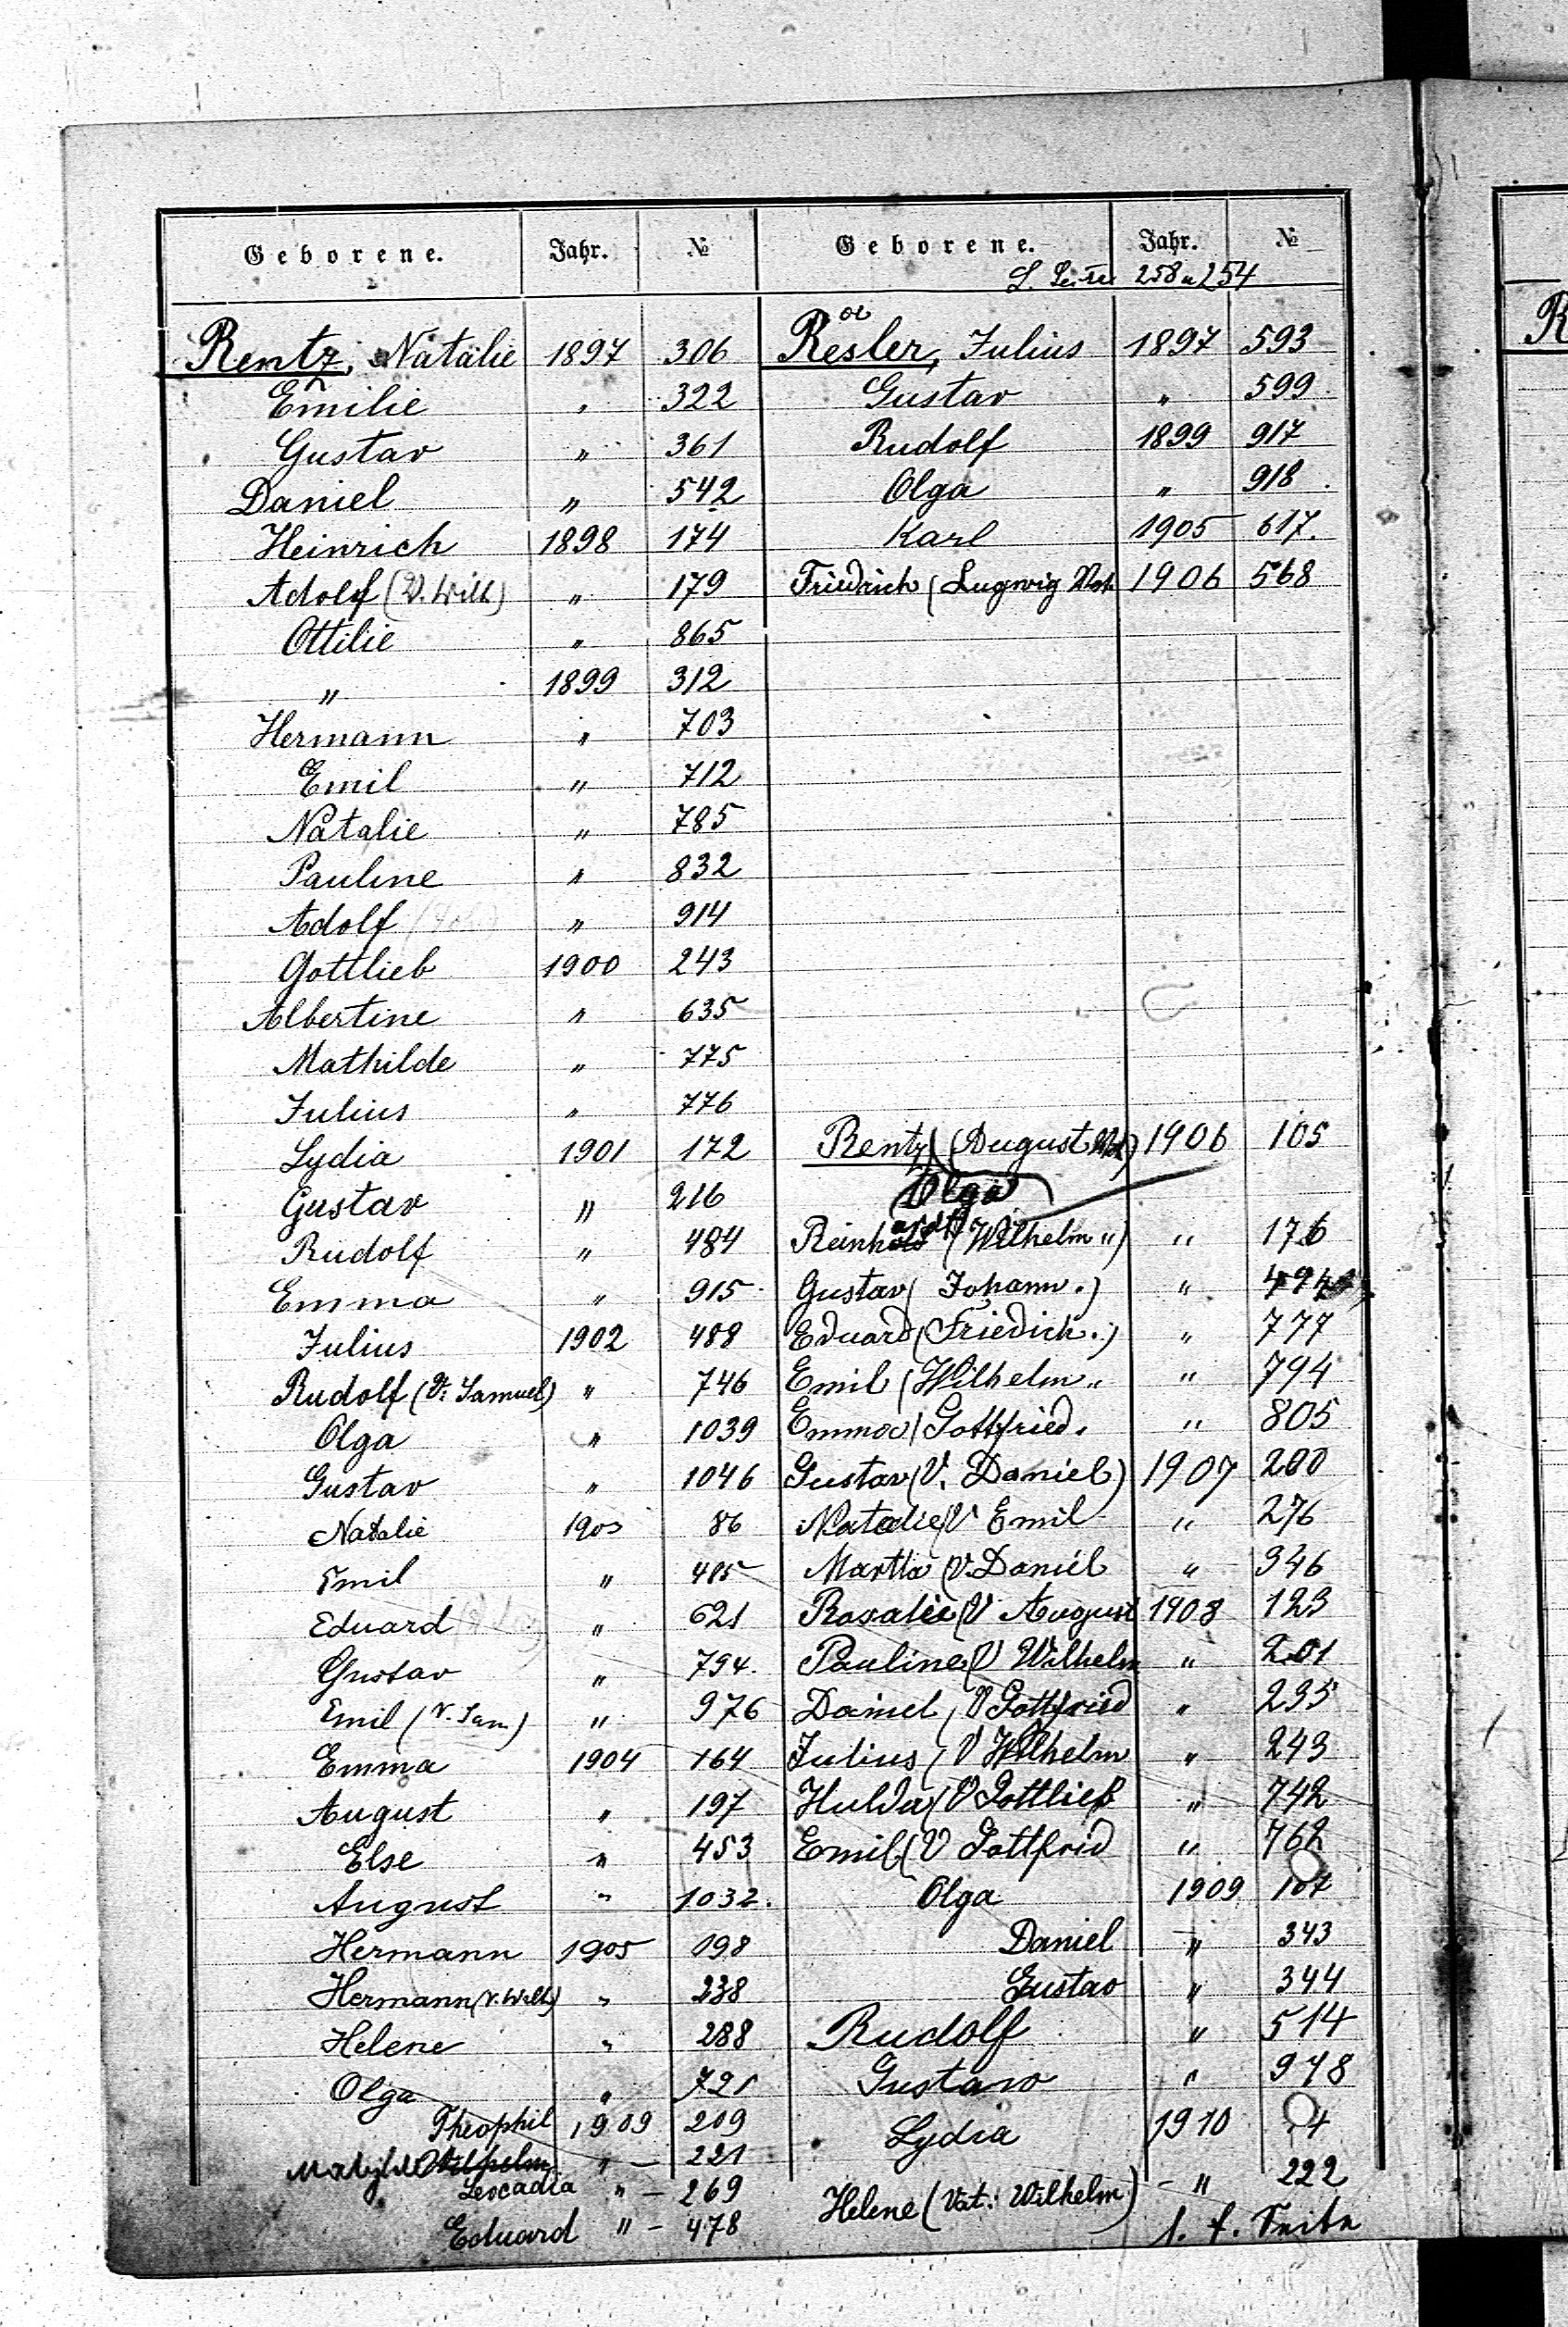 Geborene. Jahr. №
Rentz, Natalie 1897 306
Emilie " 322
Gustav " 361
Daniel " 542
Heinrich 1898 174
Adolf (V. Wilh) " 179
Ottilie " 865
" 1899 312
Hermann " 703
Emil " 712
Natalie " 785
Pauline " 832
Adolf " 914
Gottlieb 1900 243
Albertine " 635
Mathilde " 775
Julius " 776
Lydia 1901 172
Gustav " 216
Rudolf " 484
Emma " 915
Julius 1902 488
Rudolf (V. Samuel) " 746
Olga " 1039
Gustav " 1046
Natalie 1903 86
Emil " 485
Eduard " 621
Gustav " 794.
Emil (V. Sam) " 976
Emma 1904 164
August " 197
Else " 453
August " 1032.
Hermann 1905 198
Hermann (V. Wilh) " 238
Helene " 288
Olga " 721
Theophil 1909 209
" — 221
Leocadia " — 269
Eduard " — 478
Geborene. Jahr. №
258 u 254
Resler, Julius 1897 593
Gustav " 599
Rudolf 1899 917
Olga " 918.
Karl 1905 617.
Friedrich (Lugwig Vat. 1906 568
Rentz (August Vat) 1906 105
Olga
Reinhold (Wilhelm ") " 176
Gustav (Johann.) " 494
Eduard (Friedich.) " 777
Emil (Wilhelm " " 794
Emma (Gottfried. " 805
Gustav (V. Daniel) 1907 200
Natalie (V Emil " 276
Martha (V. Daniel " 346
Rosalie (V August 1908 123
Pauline (V Wilhelm " 201
Daniel (V Gottfried " 235
Julius (V Wilhelm " 243
Hulda (V Gottlieb " 742
Emil (V Gottfrid " 762
Olga 1909 107
Daniel " 343
Gustav " 344
Rudolf " 514
Gustaw " 948
Lydia 1910 4
Helene (Vat: Wilhelm) — " 222